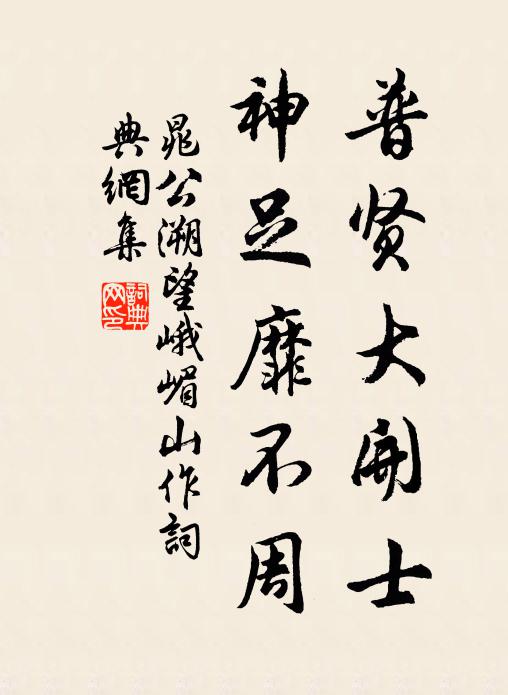 普贤大開士
神足靡不周
晁公溯望峨嵋山作詞
典網集
詞典
网印